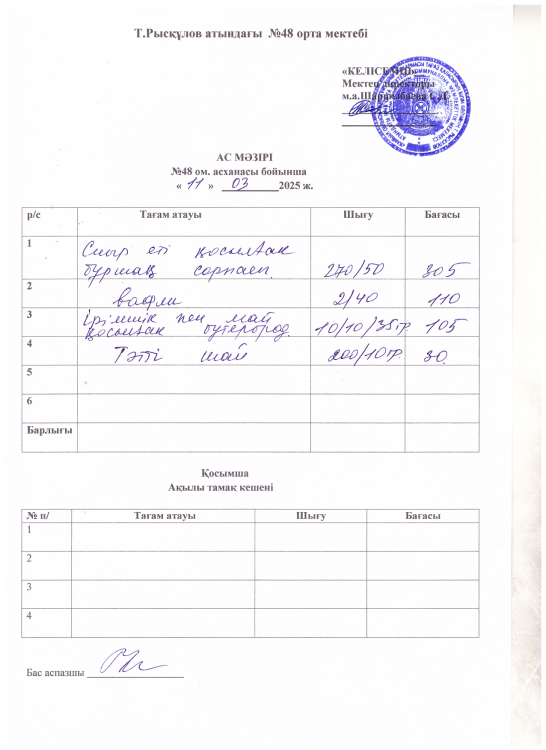 Т.Рысқұлов атындағы №48 орта мектебі
«КЕЛІСЕМІН»
Мектеп директоры
м.а.
АС МӘЗІРІ
№48 ом. асханасы бойынша
« 11 » 03 2025 ж.
р/с Тағам атауы Шығу Бағасы
1 Сиыр еті қосылған
бұршақ сорпасы 270/50 305
2 вафли 2/40 110
3 Ірімшік пен май
қосылған бутерброд. 10/10/35гр. 105
4 Тәтті шай 200/10гр. 30.
5
6
Барлығы
Қосымша
Ақылы тамақ кешені
№ п/ Тағам атауы Шығу Бағасы
1
2
3
4
Бас аспазшы